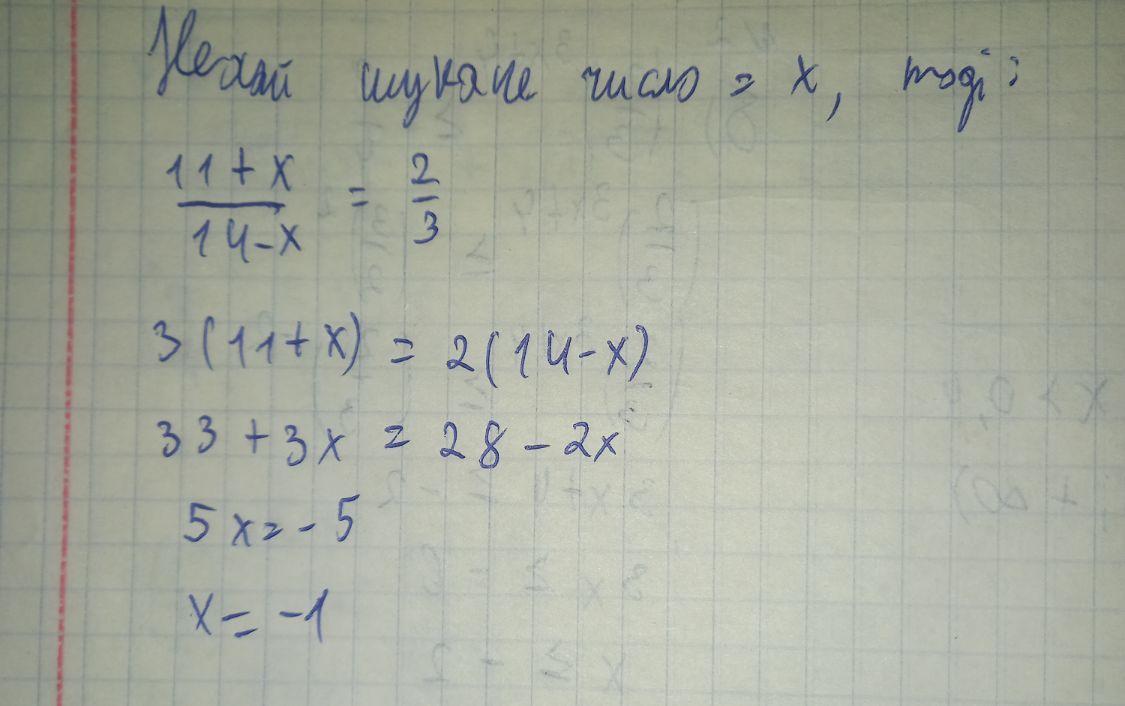 Нехай шукане число = x, тоді:
11+x / 14-x = 2/3
3(11+x) = 2(14-x)
33+3x = 28-2x
5x=-5
x=-1